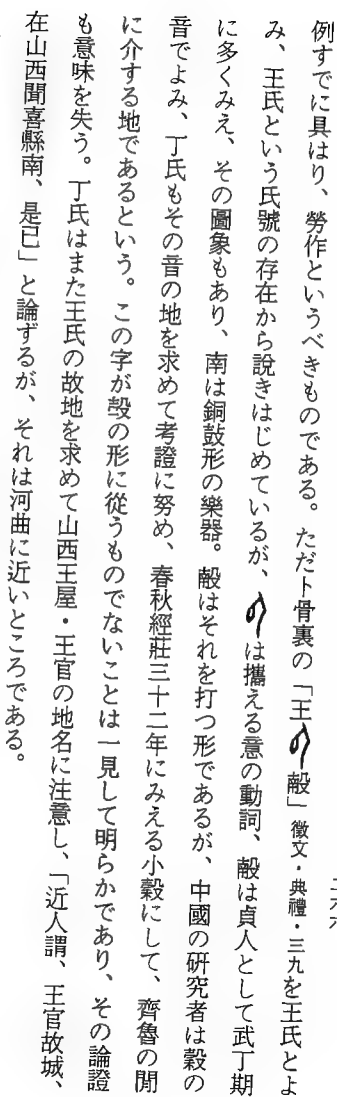 例すでに具はり、勞作というべきものである。ただト骨裏の「王 㱿」徵文・典禮・三九を王氏とよ
み、王氏という氏號の存在から說きはじめているが、 は攜える意の動詞、㱿は貞人として武丁期
に多くみえ、その圖象もあり、南は銅鼓形の樂器。㱿はそれを打つ形であるが、中國の硏究者は㱿の
音でよみ、丁氏もその音の地を求めて考證に努め、春秋經莊三十二年にみえる小穀にして、齊魯の閒
に介する地であるという。この字が㱿の形に從うものでないことは一見して明らかであり、その論證
も意味を失う。丁氏はまた王氏の故地を求めて山西王屋・王官の地名に注意し、「近人謂、王官故城、
在山西聞喜縣南、是已」と論ずるが、それは河曲に近いところである。